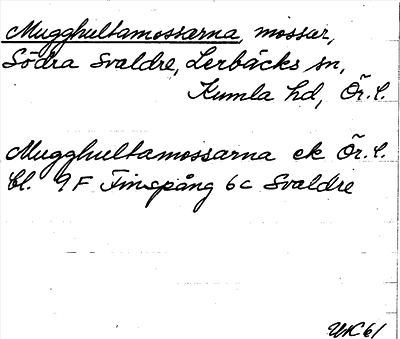 Mugghultamossarna, mossar,
Södra Svaldre, Lerbäcks sn,
Kumla hd, Ör. l.
Mugghultamossarna ek Ör. l.
bl. 9 F Finspång 6 c Svaldre